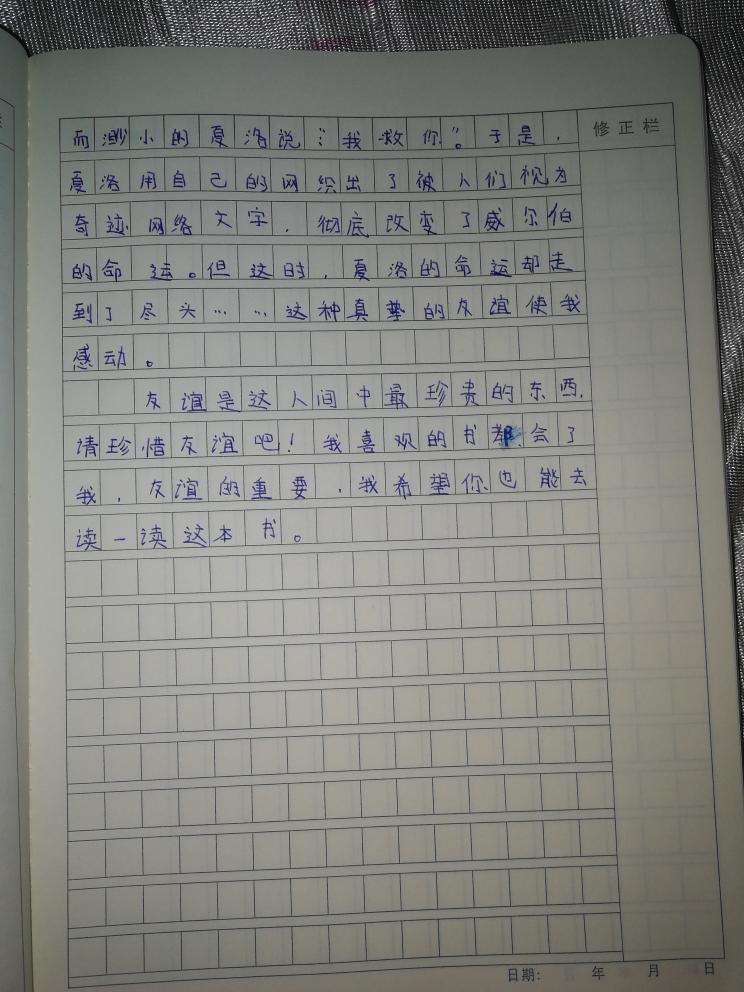 修正栏
而渺小的夏洛说："我救你"。于是，
夏洛用自己的网织出了被人们视为
奇迹网络文字，彻底改变了威尔伯
的命运。但这时，夏洛的命运却走
到了尽头……这种真挚的友谊使我
感动。
友谊是这人间中最珍贵的东西，
请珍惜友谊吧！我喜欢的书教会了
我，友谊的重要，我希望你也能去
读一读这本书。
日期： 年 月 日